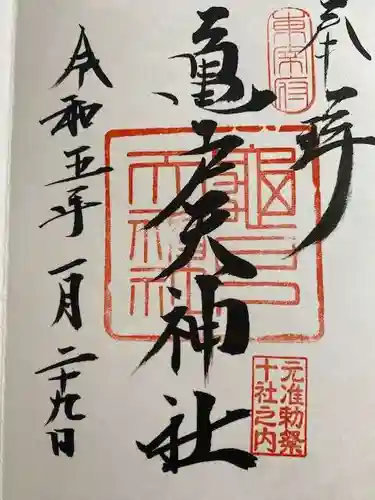 奉拝
東宰府
亀戸天神社
亀戸天神社
元准勅祭
十社之内
令和五年一月二十九日